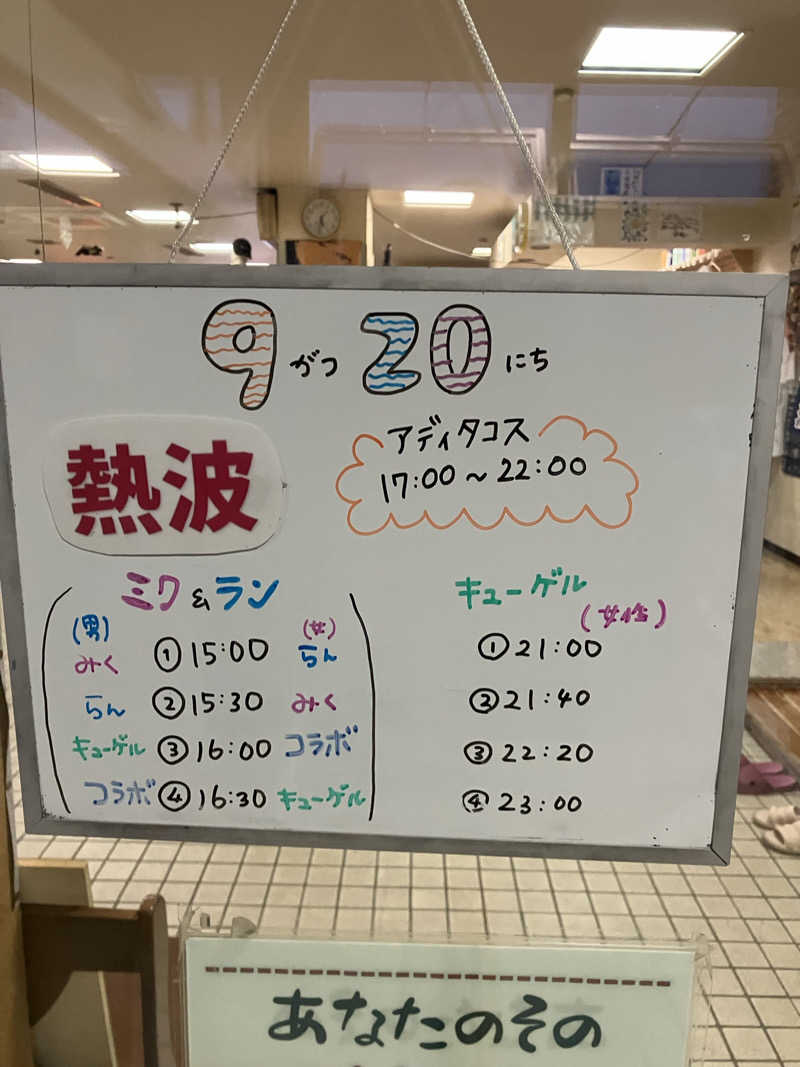 9がつ20にち
熱波
アディタコス
17:00～22:00
ミク&ラン
(男) (女)
みく ①15:00 らん
らん ②15:30 みく
キューゲル ③16:00 コラボ
コラボ ④16:30 キューゲル
キューゲル
(女性)
①21:00
②21:40
③22:20
④23:00
あなたのその